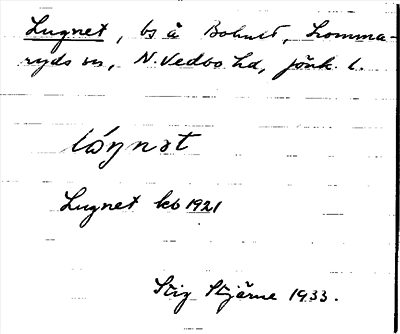 Lugnet, bs å Bohult, Lomma-
ryds sn, N. Vedbo hd, Jönk. l.
lóŋnət
Lugnet kb 1921
Stig Stjärne 1933.